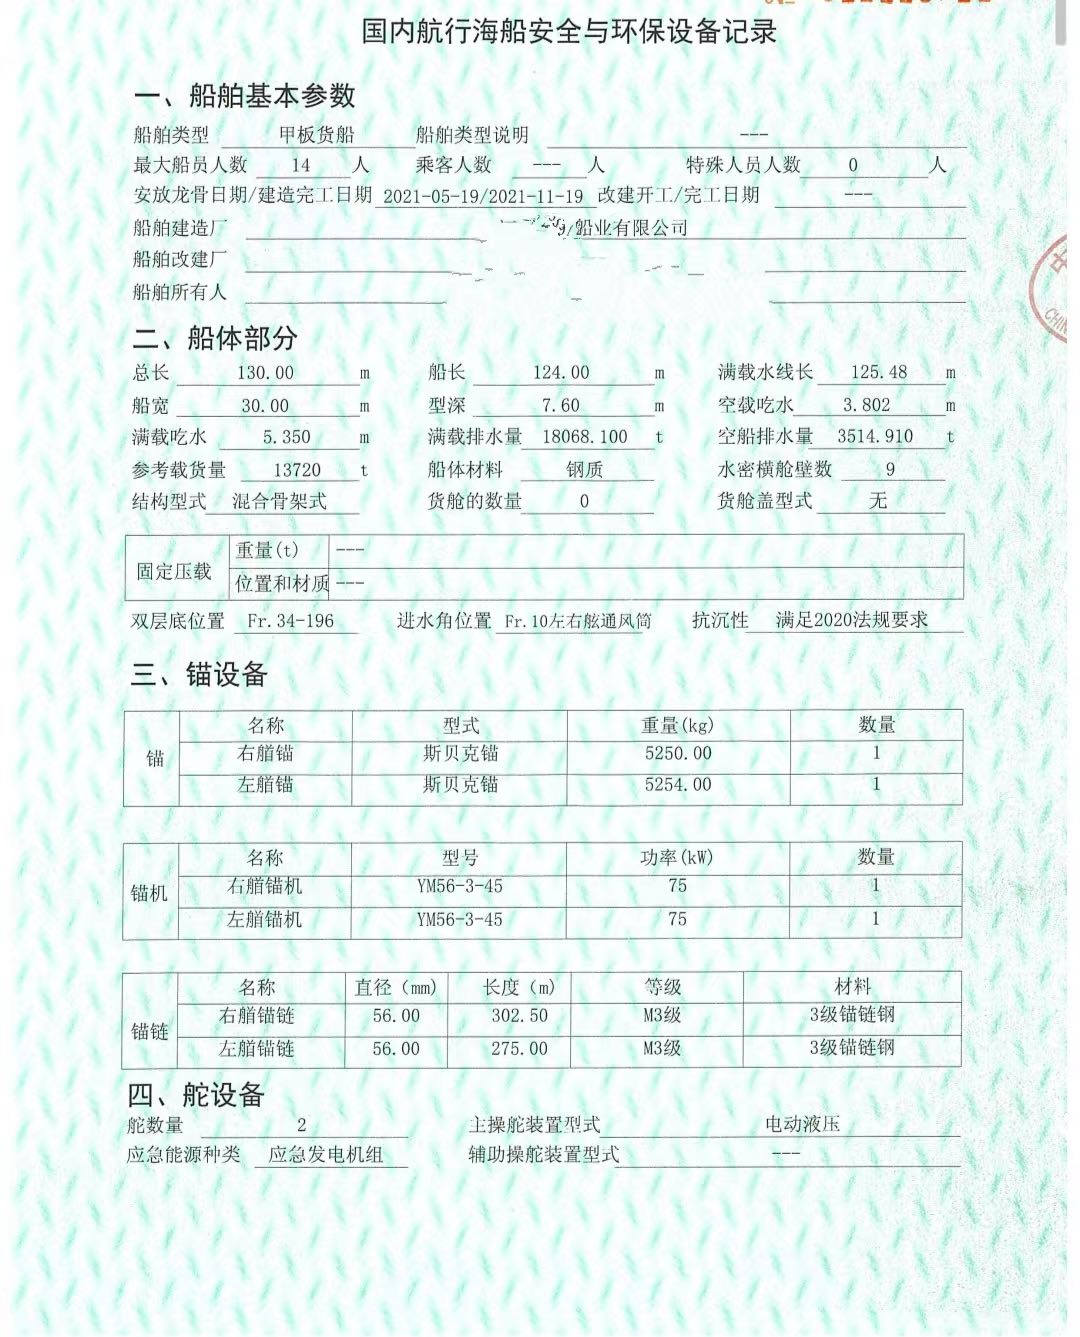 国内航行海船安全与环保设备记录
一、船舶基本参数
船舶类型 甲板货船 船舶类型说明 ---
最大船员人数 14 人 乘客人数 --- 人 特殊人员人数 0 人
安放龙骨日期/建造完工日期 2021-05-19/2021-11-19 改建开工/完工日期 ---
船舶建造厂 船业有限公司
船舶改建厂
船舶所有人
二、船体部分
总长 130.00 m 船长 124.00 m 满载水线长 125.48 m
船宽 30.00 m 型深 7.60 m 空载吃水 3.802 m
满载吃水 5.350 m 满载排水量 18068.100 t 空船排水量 3514.910 t
参考载货量 13720 t 船体材料 钢质 水密横舱壁数 9
结构型式 混合骨架式 货舱的数量 0 货舱盖型式 无
固定压载 重量(t) ---
位置和材质 ---
双层底位置 Fr.34-196 进水角位置 Fr.10左右舷通风筒 抗沉性 满足2020法规要求
三、锚设备
锚 名称 型式 重量(kg) 数量
右艏锚 斯贝克锚 5250.00 1
左艏锚 斯贝克锚 5254.00 1
锚机 名称 型号 功率(kW) 数量
右艏锚机 YM56-3-45 75 1
左艏锚机 YM56-3-45 75 1
锚链 名称 直径（mm） 长度（m） 等级 材料
右艏锚链 56.00 302.50 M3级 3级锚链钢
左艏锚链 56.00 275.00 M3级 3级锚链钢
四、舵设备
舵数量 2 主操舵装置型式 电动液压
应急能源种类 应急发电机组 辅助操舵装置型式 ---
中
CHIN